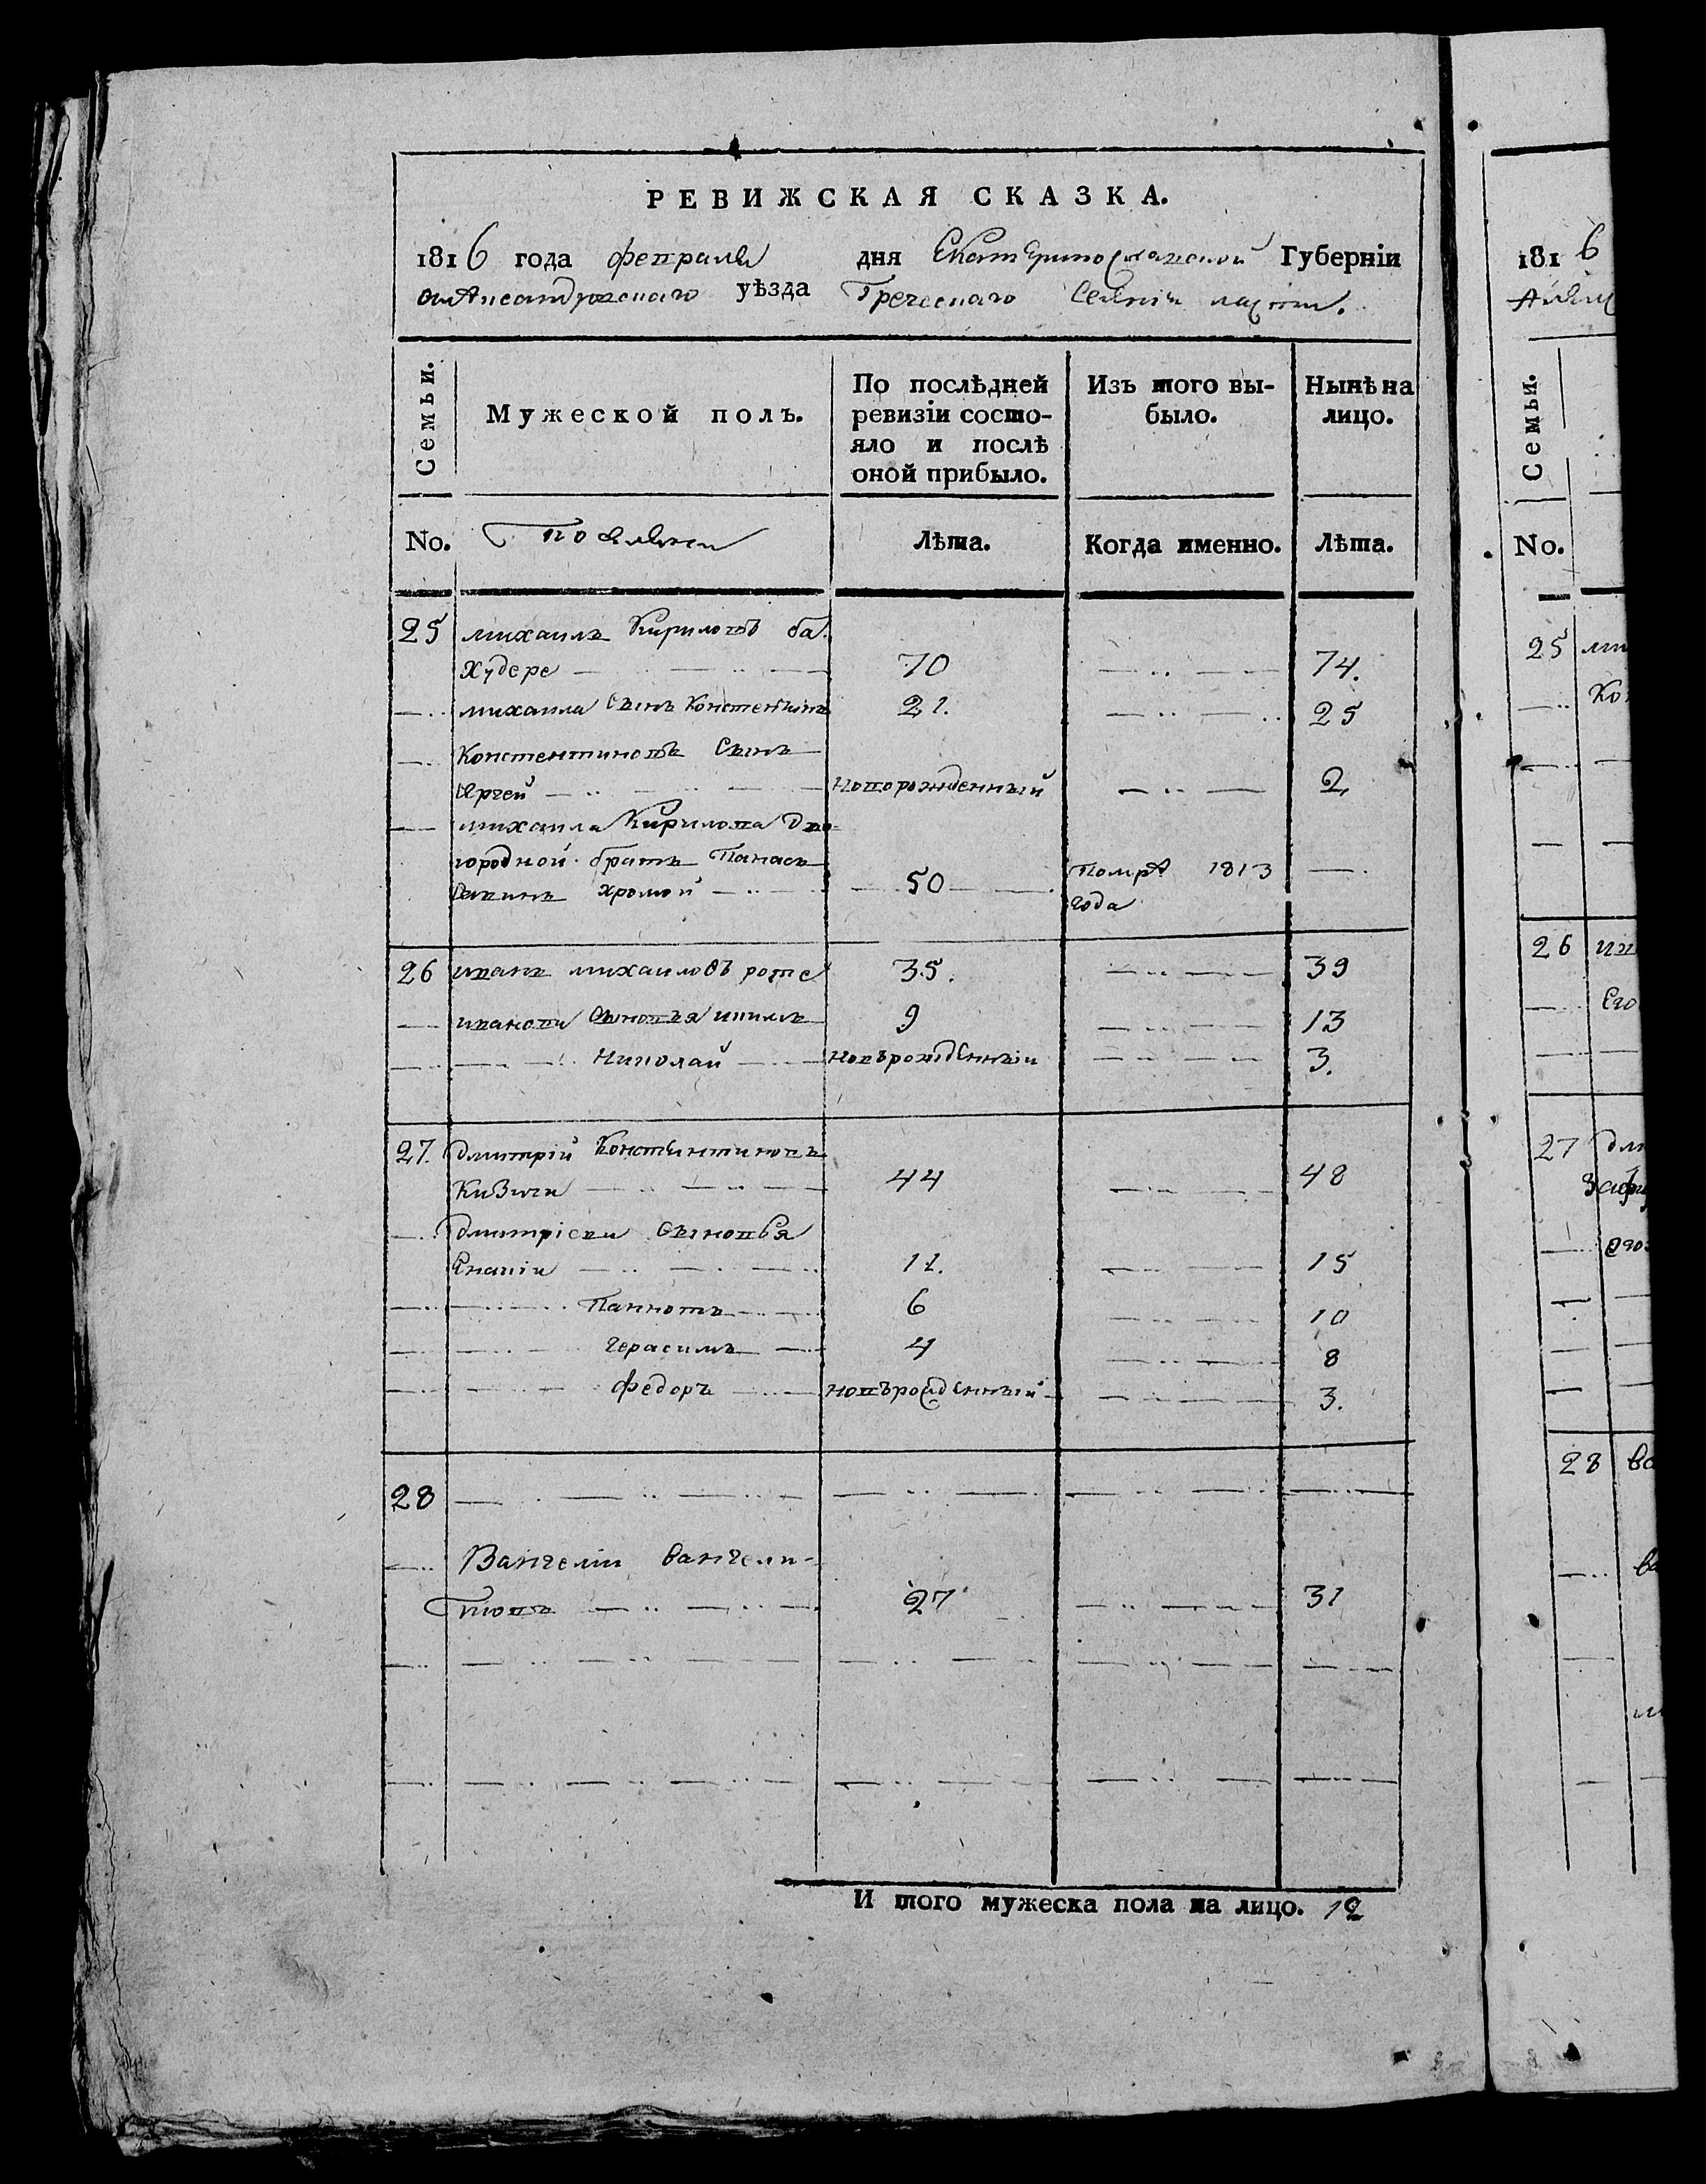 РЕВИЖСКАЯ СКАЗКА.
1816 года февраля дня Екатеринославской Губерніи
Александровскаго уѣзда Греческаго Селенія ласпи.
Семьи.
Мужеской полъ.
По послѣдней ревизіи состо-
яло и послѣ
оной прибыло.
Изъ того вы-
было.
Нынѣ на
лицо.
No.
Лѣта.
Когда именно.
Лѣта.
25 михаилъ Кириловъ ба
худере 70 74.
михаила Сынъ Констентинъ 21. 25
Констентиновъ Сынъ
новорожденный 2,
михаила Кирилова дво-
городной братъ Панасъ
хромой 50 Помре 1813 года
26 иванъ михаиловъ 35. 39
ивановы Сыновья 9 13
Николай новърожденныи 3.
27. дмитрій Констынтиновъ
44 48
дмитріевы Сыновья
11. 15
Паниотъ 6 10
Герасимъ 4 8
Федоръ новърожденный 3.
28
Вангели вангели-
новъ 27 31
И того мужеска пола на лицо. 12
1816
Семьи.
No.
25
26
Его
27
28